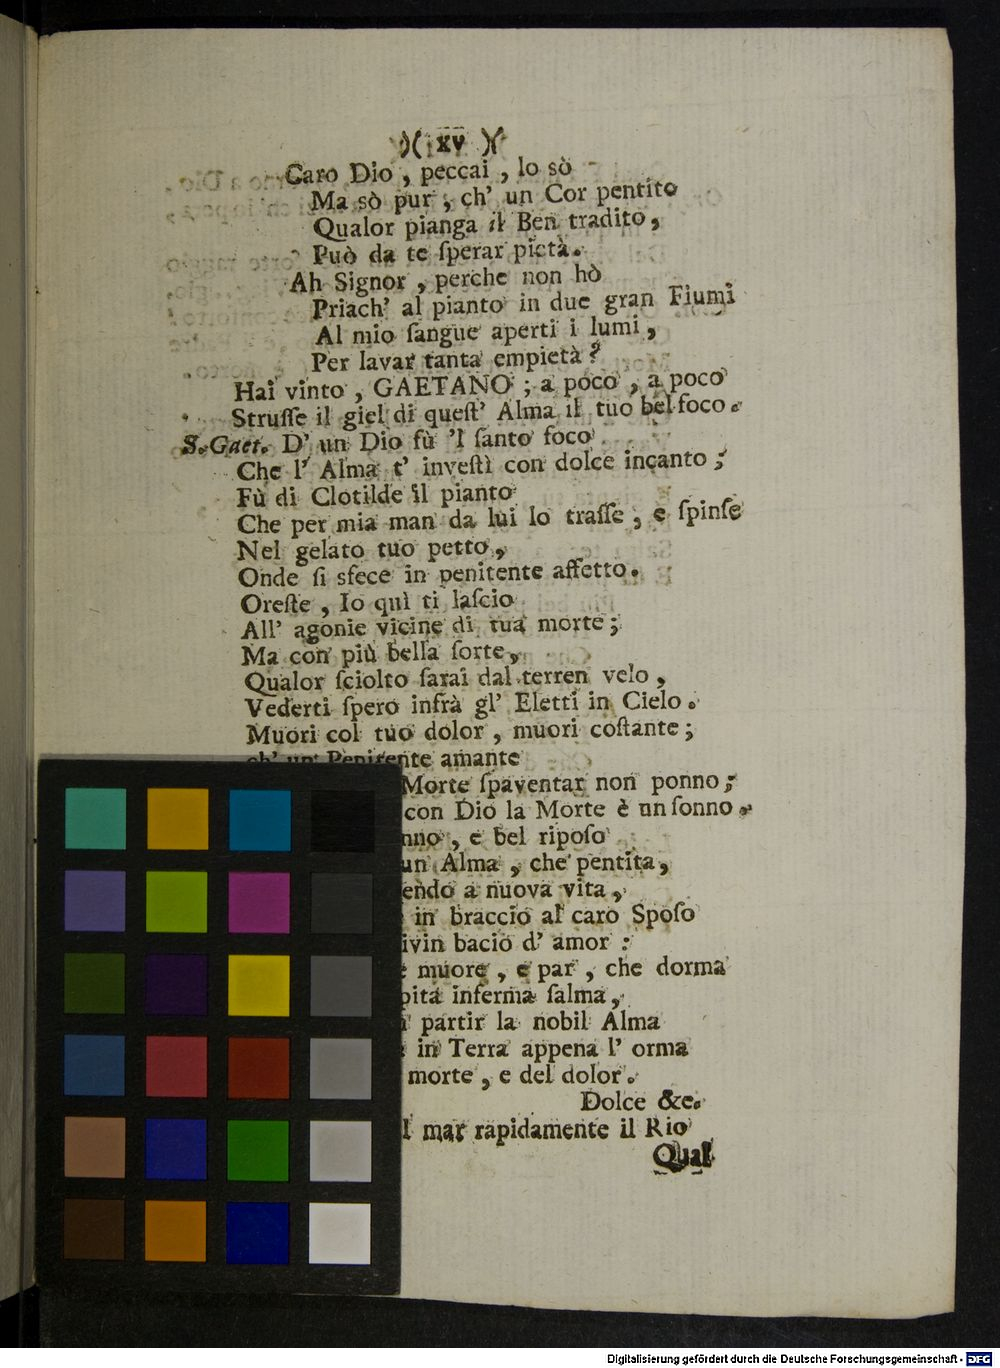 )( xv )(
Caro Dio, peccai, lo sò
Ma sò pur, ch' un Cor pentito
Qualor pianga il Ben tradito,
Può da te ſperar pietà.
Ah Signor, perche non hò
Priach' al pianto in due gran Fiumi
Al mio ſangue aperti i lumi,
Per lavar tanta empietà?
Hai vinto, GAETANO; a poco, a poco
Struſſe il giel di queſt' Alma il tuo bel foco.
S. Gaet. D' un Dio fù 'l ſanto foco
Che l' Alma t' inveſtì con dolce incanto;
Fù di Clotilde il pianto
Che per mia man da lui lo traſſe, e ſpinſe
Nel gelato tuo petto,
Onde ſi sfece in penitente affetto.
Oreſte, Io quì ti laſcio
All' agonie vicine di tua morte;
Ma con più bella ſorte,
Qualor ſciolto ſarai dal terren velo,
Vederti ſpero infrà gl' Eletti in Cielo.
Muori col tuo dolor, muori coſtante;
ch' un Penitente amante
Morte ſpaventar non ponno;
con Dio la Morte è un ſonno.
nno, e bel ripoſo
un Alma, che pentita,
endo a nuova vita,
in braccio al caro Spoſo
ivin bacio d' amor:
muore, e par, che dorma
pita inferma ſalma,
partir la nobil Alma
in Terra appena l' orma
morte, e del dolor.
Dolce &c.
l mar rapidamente il Rio
Qual
Digitalisierung gefördert durch die Deutsche Forschungsgemeinschaft - DFG